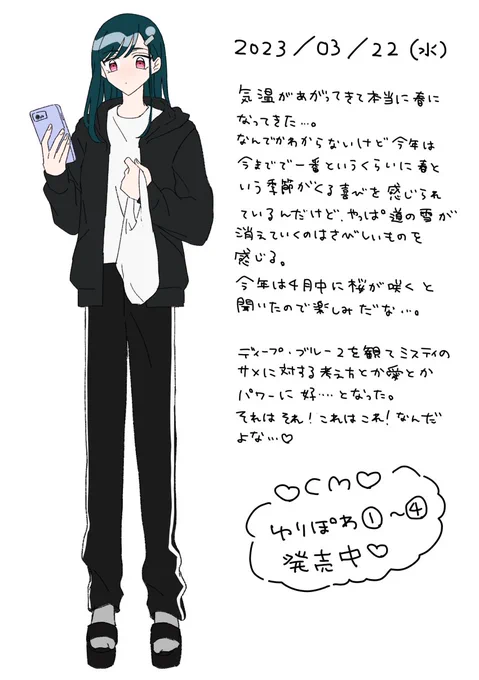 2023/03/22(水)
気温があがってきて本当に春に
なってきた…。
なんでかわからないけど今年は
今までで一番というくらいに春と
いう季節がくる喜びを感じられ
ているんだけど、やっぱ道の雪が
消えていくのはさびしいものを
感じる。
今年は4月中に桜が咲くと
聞いたので楽しみだな…。
ディープ・ブルー2を観てミスティの
サメに対する考え方とか愛とか
パワーに好‥‥となった。
それはそれ!これはこれ!なんだ
よな…♡
♡CM♡
ゆりぽわ①～④
発売中♡